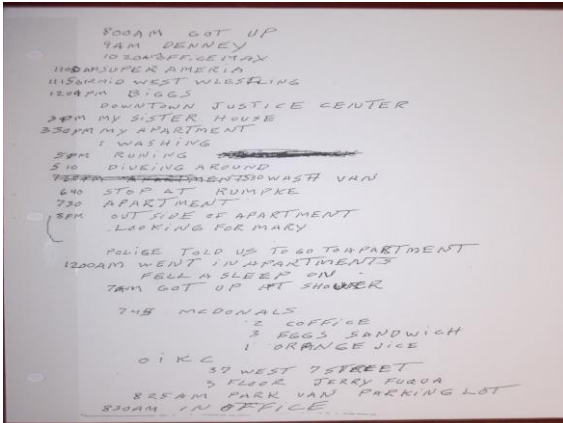 800AM GOT UP
9AM DENNEY
1020AM OFFICEMAX
1100AM SUPER AMERIA
1115AM MID WEST WLESTLING
1200PM BIGGS
DOWNTOWN JUSTICE CENTER
3PM MY SISTER HOUSE
330PM MY APARTMENT
1 WASHING
5PM RUNING
510 DIVEING AROUND
APARTMENT 530 WASH VAN
640 STOP AT RUMPKE
730 APARTMENT
8PM OUT SIDE OF APARTMENT
LOOKING FOR MARY
POLICE TOLD US TO GO TO APARTMENT
1200AM WENT IN APARTMENTS
FELL A SLEEP ON
7AM GOT UP AT SHOWER
745 MCDONALS
2 COFFICE
3 EGGS SANDWICH
1 ORANGE JICE
OIKC
37 WEST 7 STREET
3 FLOOR JERRY FUQUA
825AM PARK VAN PARKING LOT
830AM IN OFFICE